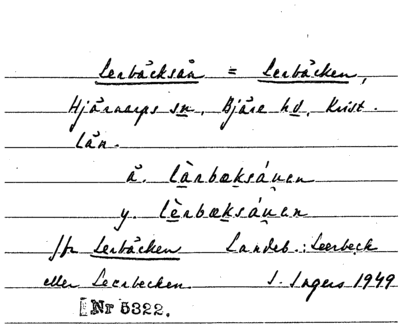 Lerbäcksån = Lerbäcken,
Hjärnarps sn, Bjäre hd, Krist.
län.
ä. lèrbæksáuen
y. lèrbæksáuen
fr Lerbäcken Landeb.: Leerbeck
eller Leerbecken. I. Ingers 1949
Nr 5322.